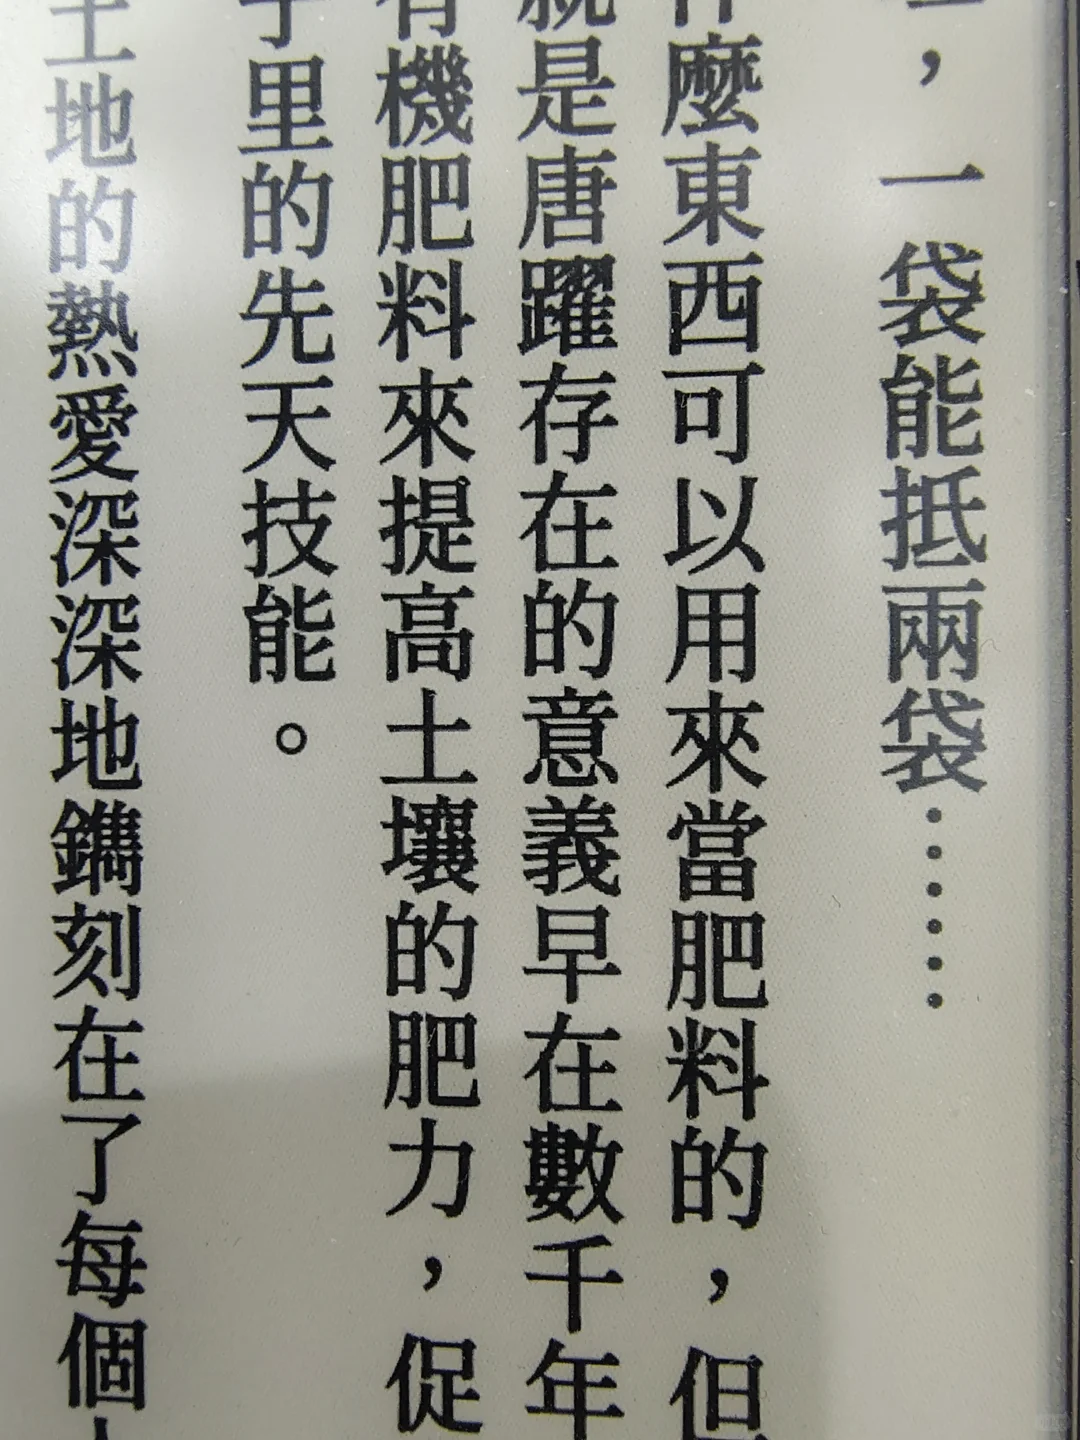 ，一袋能抵兩袋……
什麼東西可以用來當肥料的，但
就是唐躍存在的意義早在數千年
有機肥料來提高土壤的肥力，促
子里的先天技能。
土地的熱愛深深地鐫刻在了每個